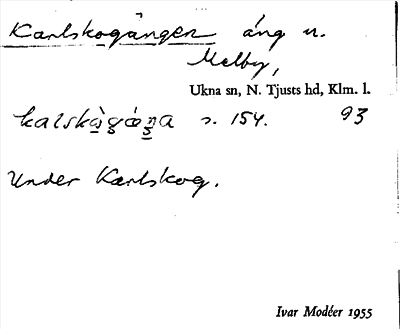 Karlskogängen äng n.
Melby,
Ukna sn, N. Tjusts hd, Klm. l.
s. 154. 93
Under Karlskog.
Ivar Modéer 1955